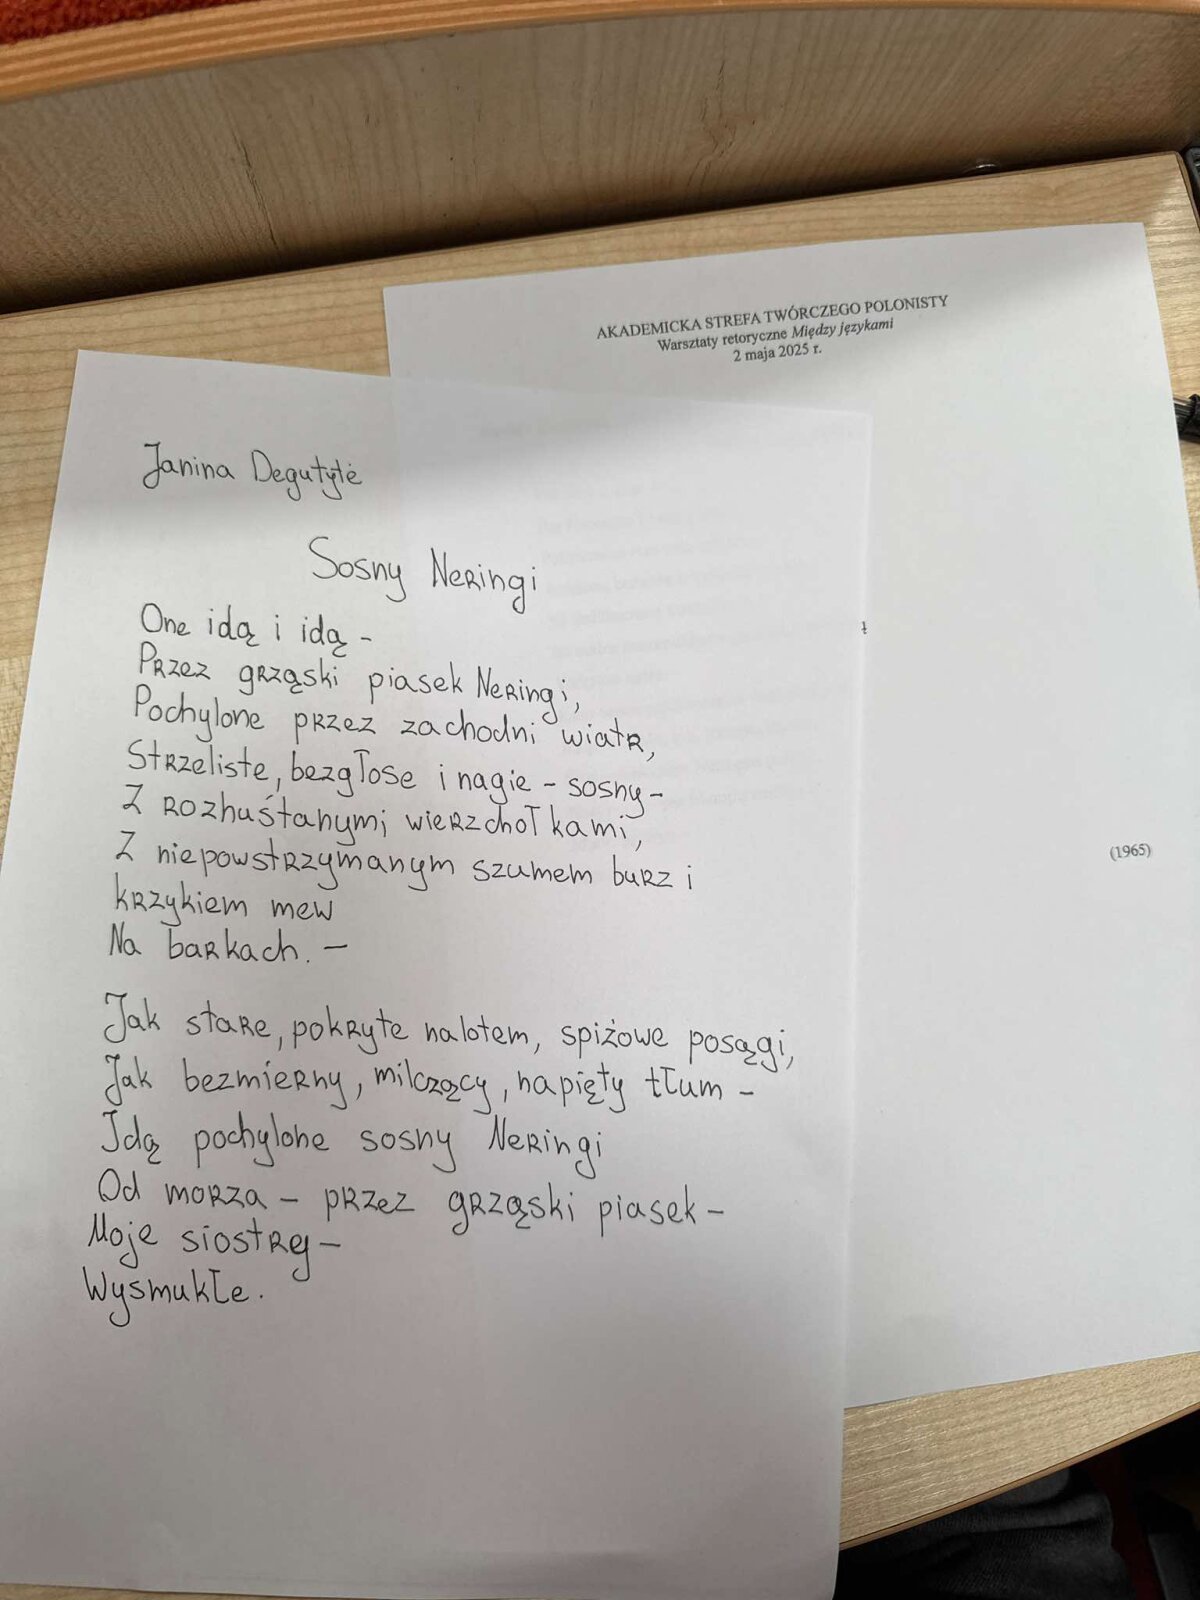 AKADEMICKA STREFA TWÓRCZEGO POLONISTY
Warsztaty retoryczne Między językami
2 maja 2025 r.
(1965)
Janina Degutytė
Sosny Neringi
One idą i idą -
Przez grząski piasek Neringi,
Pochylone przez zachodni wiatr,
Strzeliste, bezgłose i nagie - sosny -
Z rozhuśtanymi wierzchołkami,
Z niepowstrzymanym szumem burz i
krzykiem mew
Na barkach. -
Jak stare, pokryte nalotem, spiżowe posągi,
Jak bezmierny, milczący, napięty tłum -
Idą pochylone sosny Neringi
Od morza - przez grząski piasek -
Moje siostry -
Wysmukłe.